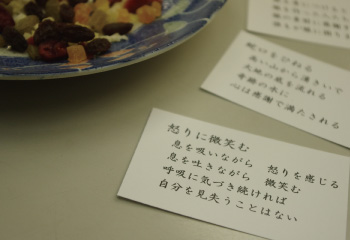 怒りに微笑む
息を吸いながら 怒りを感じる
息を吐きながら 微笑む
呼吸に気づき続ければ
自分を見失うことはない
蛇口をひねる
高い山から湧きいで
大地の底を流れる
奇跡の水に
心は感謝で満たされる